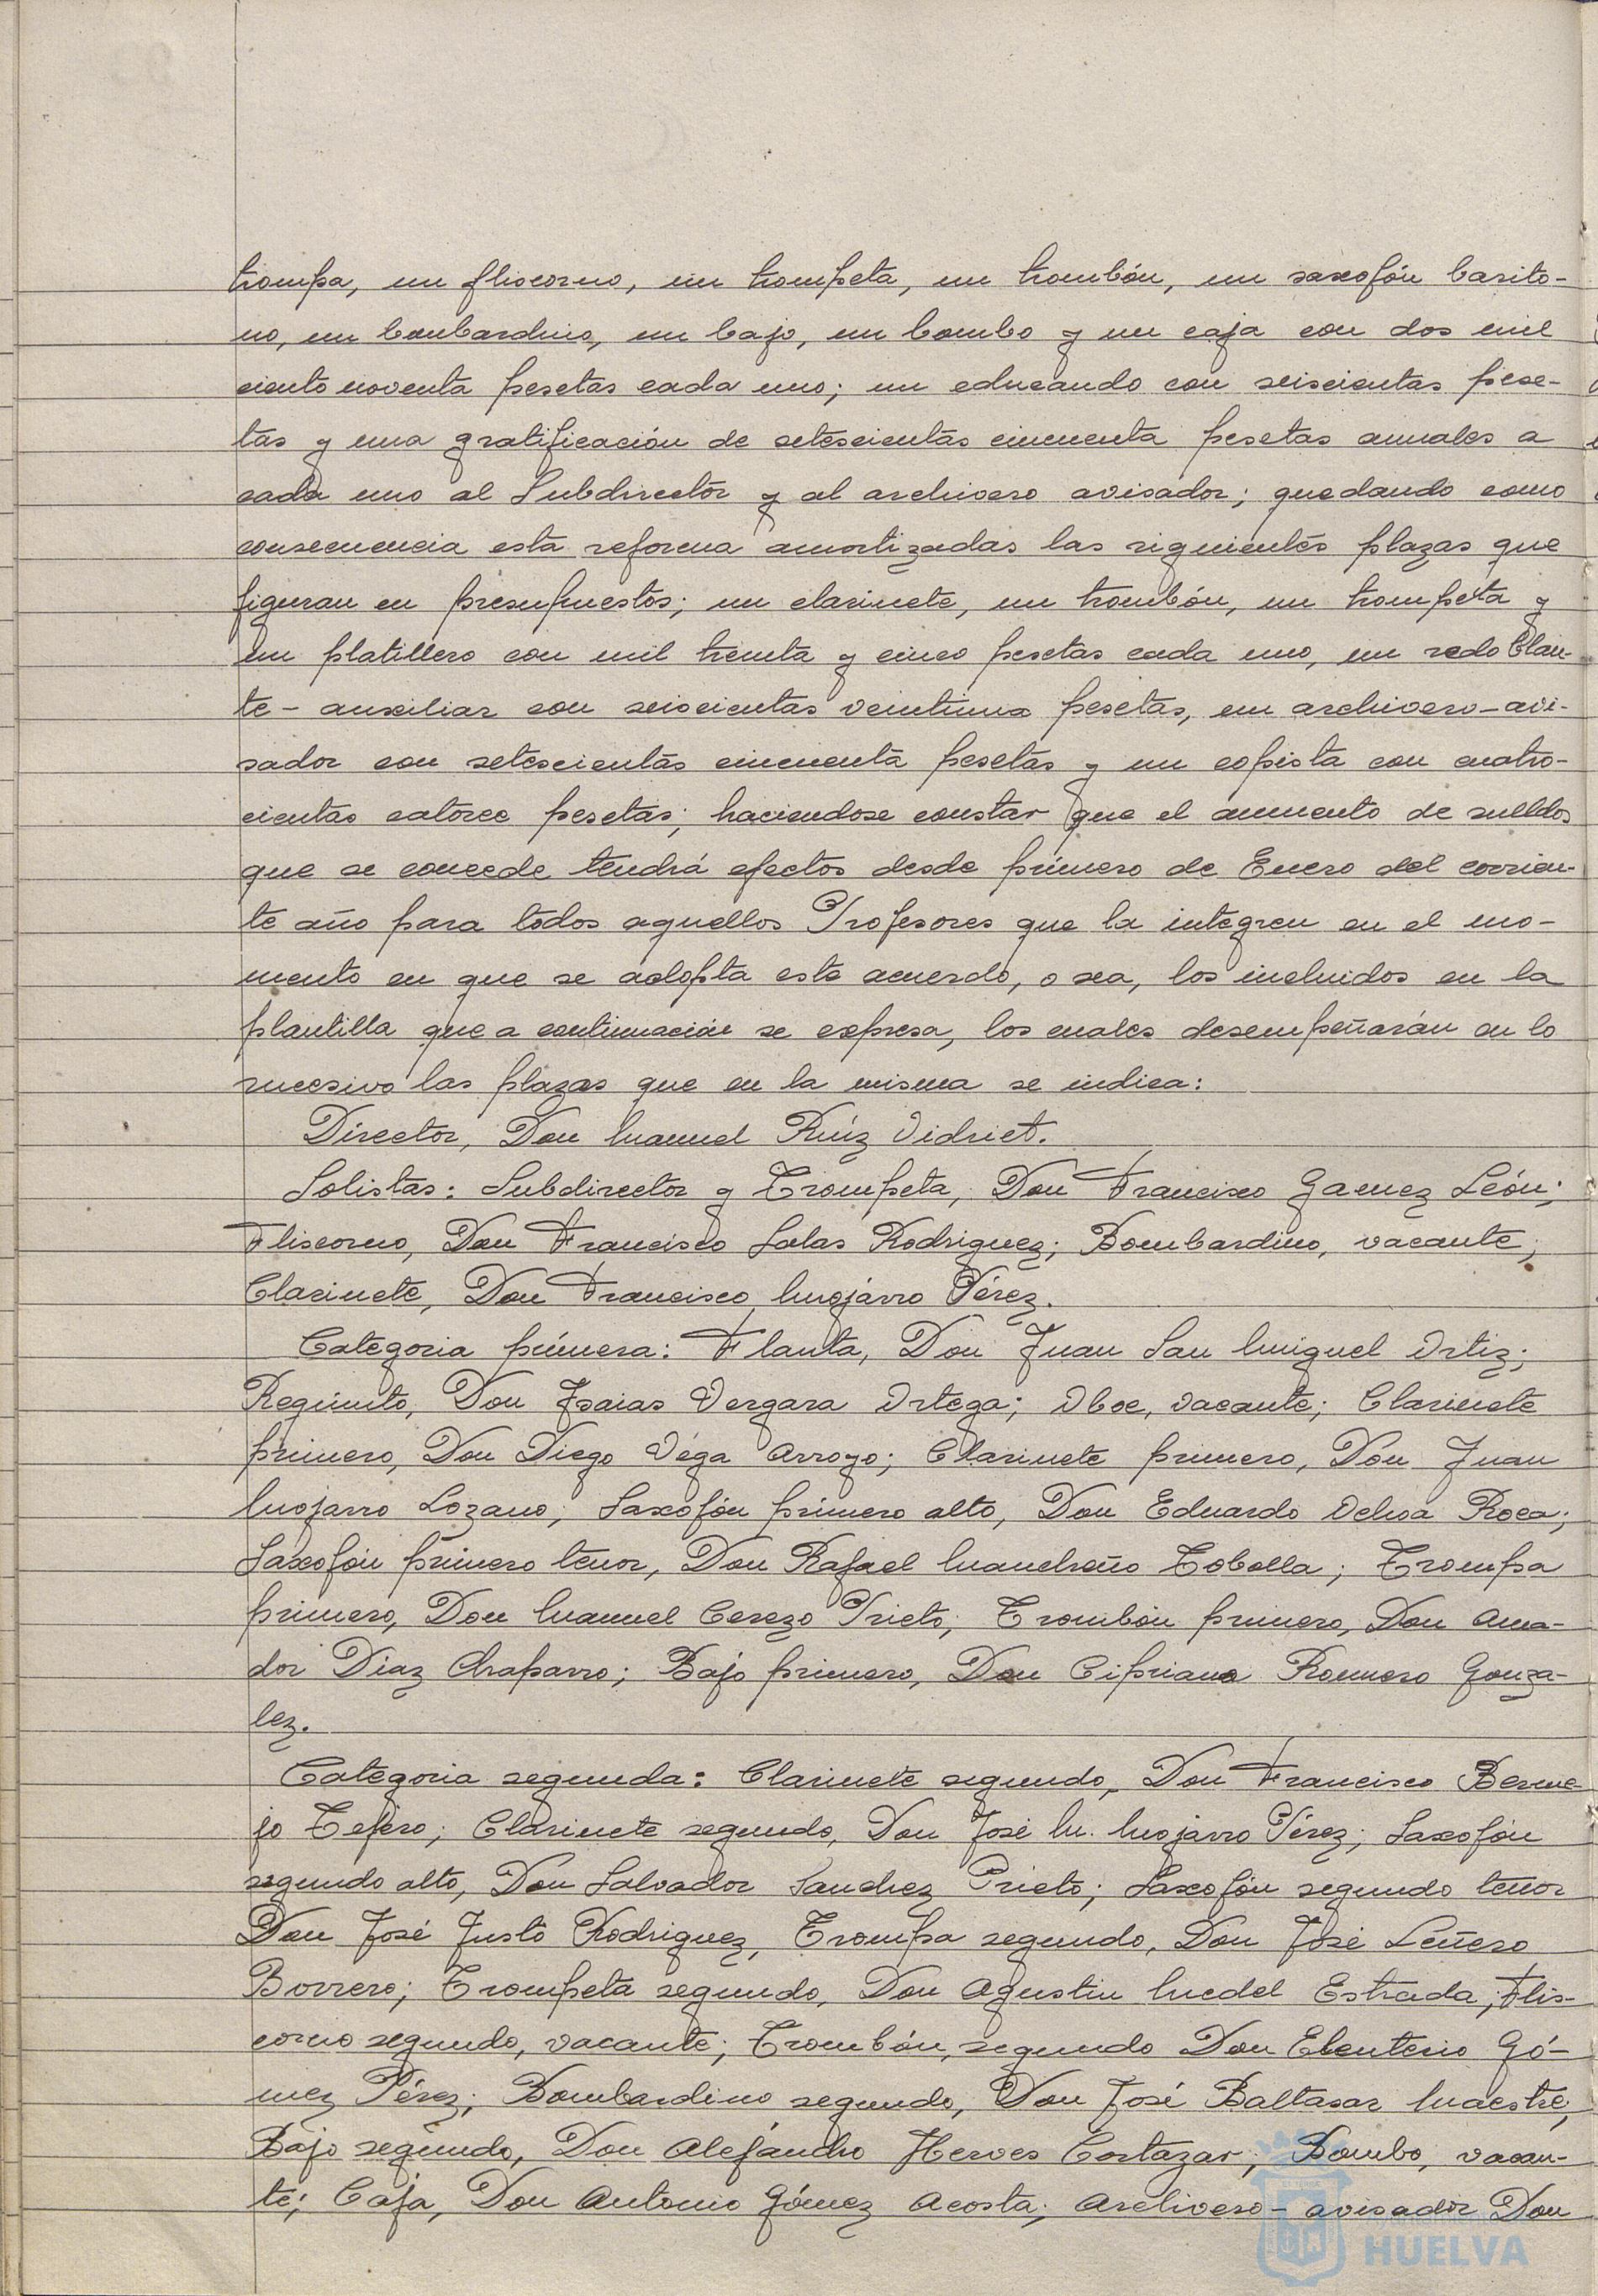 trompa, un fliscorno, un trompeta, un trombón, un saxofón baríto-
no, un bombardino, un bajo, un bombo y un caja con dos mil
ciento noventa pesetas cada uno; un educando con seiscientas pese-
tas y una gratificación de setescientas cincuenta pesetas anuales a
cada uno al Subdirector y al archivero avisador; quedando como
consecuencia esta reforma amortizadas las siguientes plazas que
figuran en presupuestos; un clarinete, un trombón, un trompeta y
un platillero con mil treinta y cinco pesetas cada uno, un redoblan-
te-auxiliar con seiscientas veintiuna pesetas, un archivero-avi-
sador con setescientas cincuenta pesetas y un copista con cuatro-
cientas catorce pesetas; haciendose constar que el aumento de sueldos
que se concede tendrá efectos desde primero de Enero del corrien-
te año para todos aquellos Profesores que la integren en el mo-
mento en que se adopta este acuerdo, o sea, los incluidos en la
plantilla que a continuación se expresa, los cuales desempeñarán en lo
sucesivo las plazas que en la misma se indica:
Director, Don Manuel Ruíz Vidriet.
Solistas: Subdirector y Trompeta, Don Francisco Gamez León;
Fliscorno, Don Francisco Salas Rodriguez; Bombardino, vacante;
Clarinete, Don Francisco Mojarro Pérez.
Categoria primera: Flauta, Don Juan San Miguel Ortiz;
Requinto, Don Isaias Vergara Ortega; Oboe, vacante; Clarinete
primero, Don Diego Véga Arroyo; Clarinete primero, Don Juan
Mojarro Lozano; Saxofón primero alto, Don Eduardo Ochoa Roca;
Saxofón primero tenor, Don Rafael Mancheño Tobolla; Trompa
primero, Don Manuel Cerezo Prieto; Trombón primero, Don Ama-
dor Diaz Chaparro; Bajo primero, Don Cipriano Romero Gonza-
lez.
Categoria segunda: Clarinete segundo, Don Francisco Berme-
jo Tejero; Clarinete segundo, Don José M. Mojarro Pérez; Saxofón
segundo alto, Don Salvador Sanchez Prieto; Saxofón segundo tenor
Don José Justo Rodriguez, Trompa segundo, Don José Leñero
Borrero; Trompeta segundo, Don Agustin Medel Estrada; Flis-
corno segundo, vacante; Trombón, segundo Don Eleuterio Gó-
mez Pérez; Bombardino segundo, Don José Baltasar Maestre;
Bajo segundo, Don Alejandro Herves Cortazar; Bombo, vacan-
te; Caja, Don Antonio Gómez Acosta; Archivero-avisador Don
HUELVA